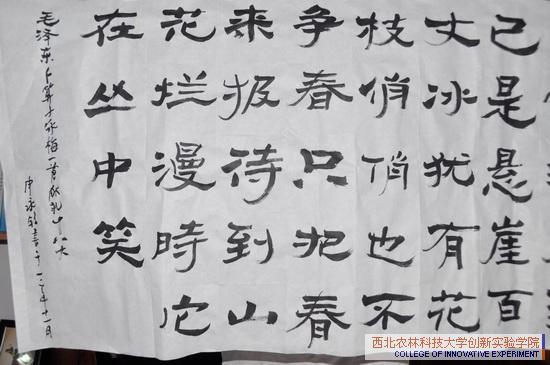 已是悬崖百
丈冰犹有花
枝俏俏也不
争春只把春
来报待到山
花烂漫時它
在丛中笑
毛泽东卜算子咏梅一首献礼十八大
西北农林科技大学创新实验学院
COLLEGE OF INNOVATIVE EXPERIMENT